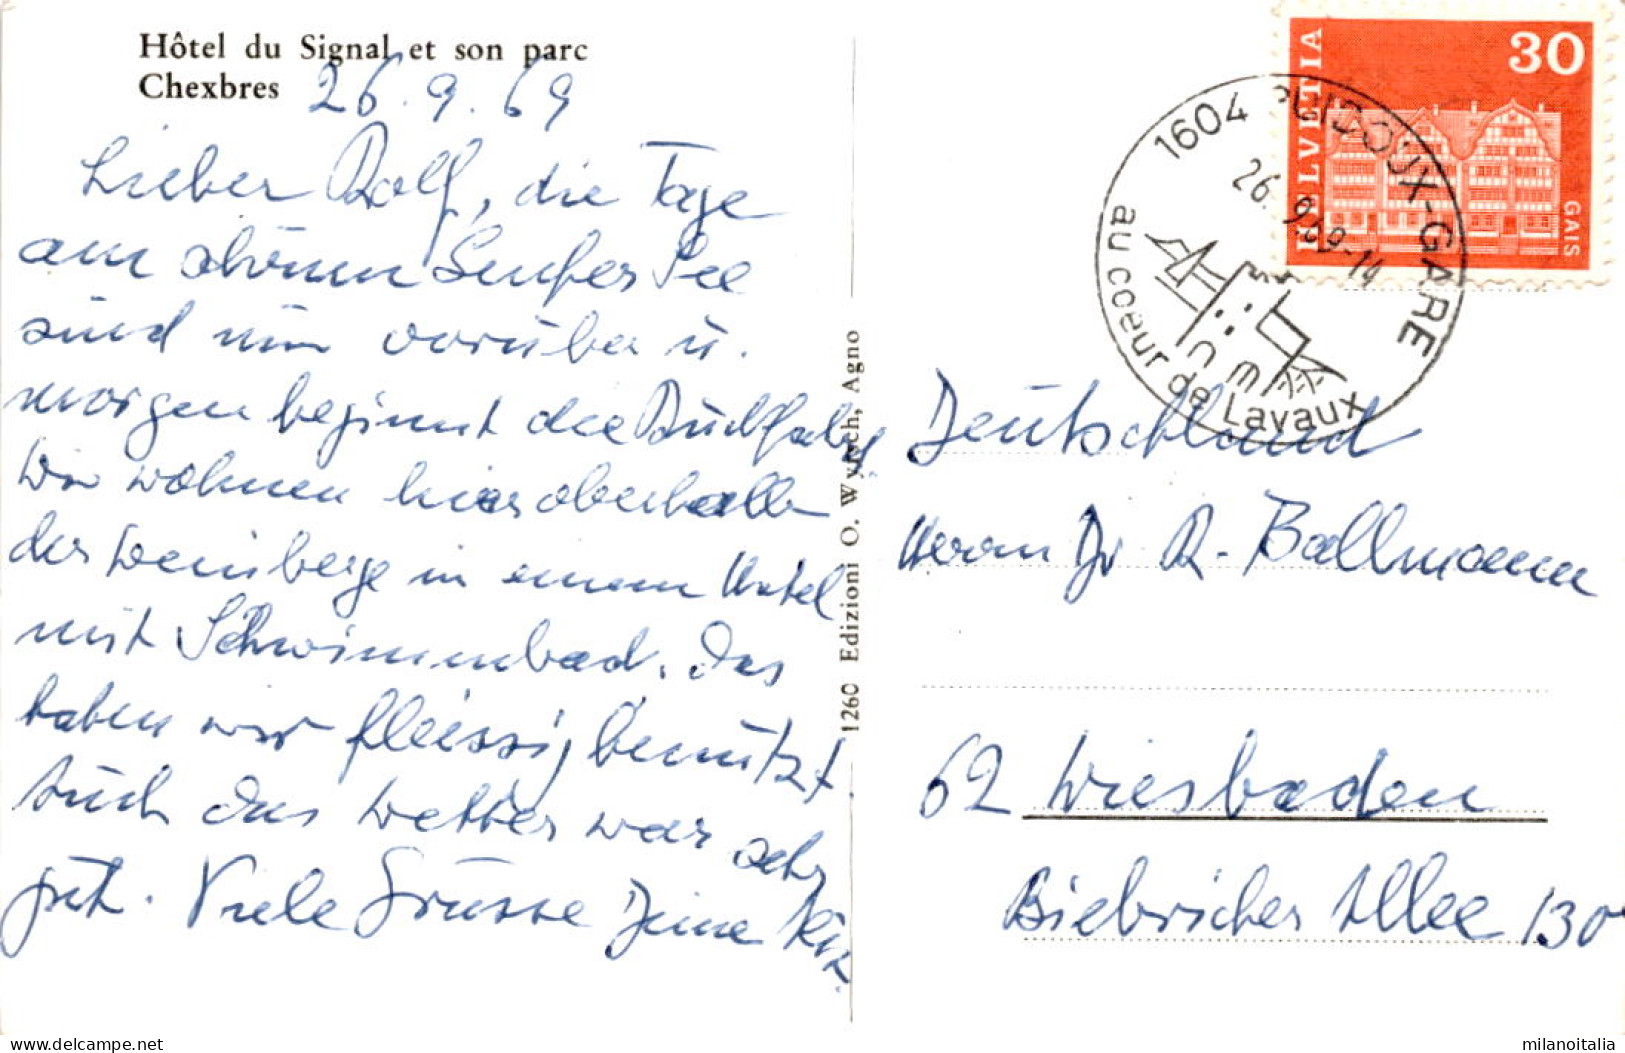 Hôtel du Signal et son parc
Chexbres
26.9.69
Lieber Rolf, die Tage
am schönen Genfer See
sind nun vorüber u.
morgen beginnt die Rückfahrt
Wir wohnen hier oberhalb
der Weinberge in einem Hotel
mit Schwimmbad. Das
haben wir fleissig benützt.
Auch das Wetter war sehr
gut. Viele Grüsse Deine
1260 Edizioni O. Wyrsch, Agno
HELVETIA
30
GAIS
1604 PUIDOUX-GARE
26.9.69-14
au coeur de Lavaux
Deutschland
Herrn Dr R. Ballmann
62 Wiesbaden
Biebricher Allee 130
milanoitalia
www.delcampe.net